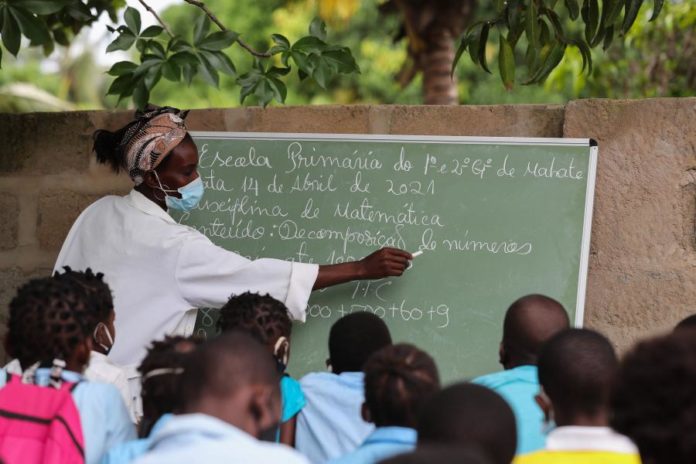 Escola Primária do 1º e 2º Gr. de Mahate
ata 14 de Abril de 2021
Disciplina de Matemática
nteúdo: Decomposição de números
até 1
TPC
000+500+60+9